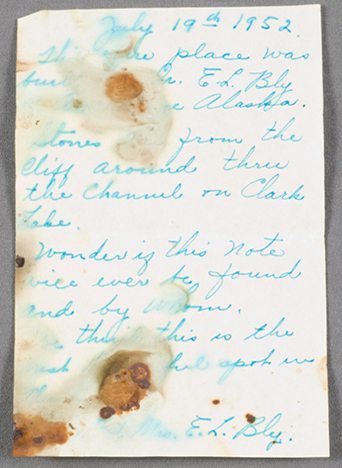 July 19th 1952.
place was
E. L. Bly
Alaska.
Stones from the
Cliff around thru
the Channel on Clark
Lake.
Wonder if this Note
vice ever be found
and by whom.
this is the
spot in
Mrs. E. L. Bly.